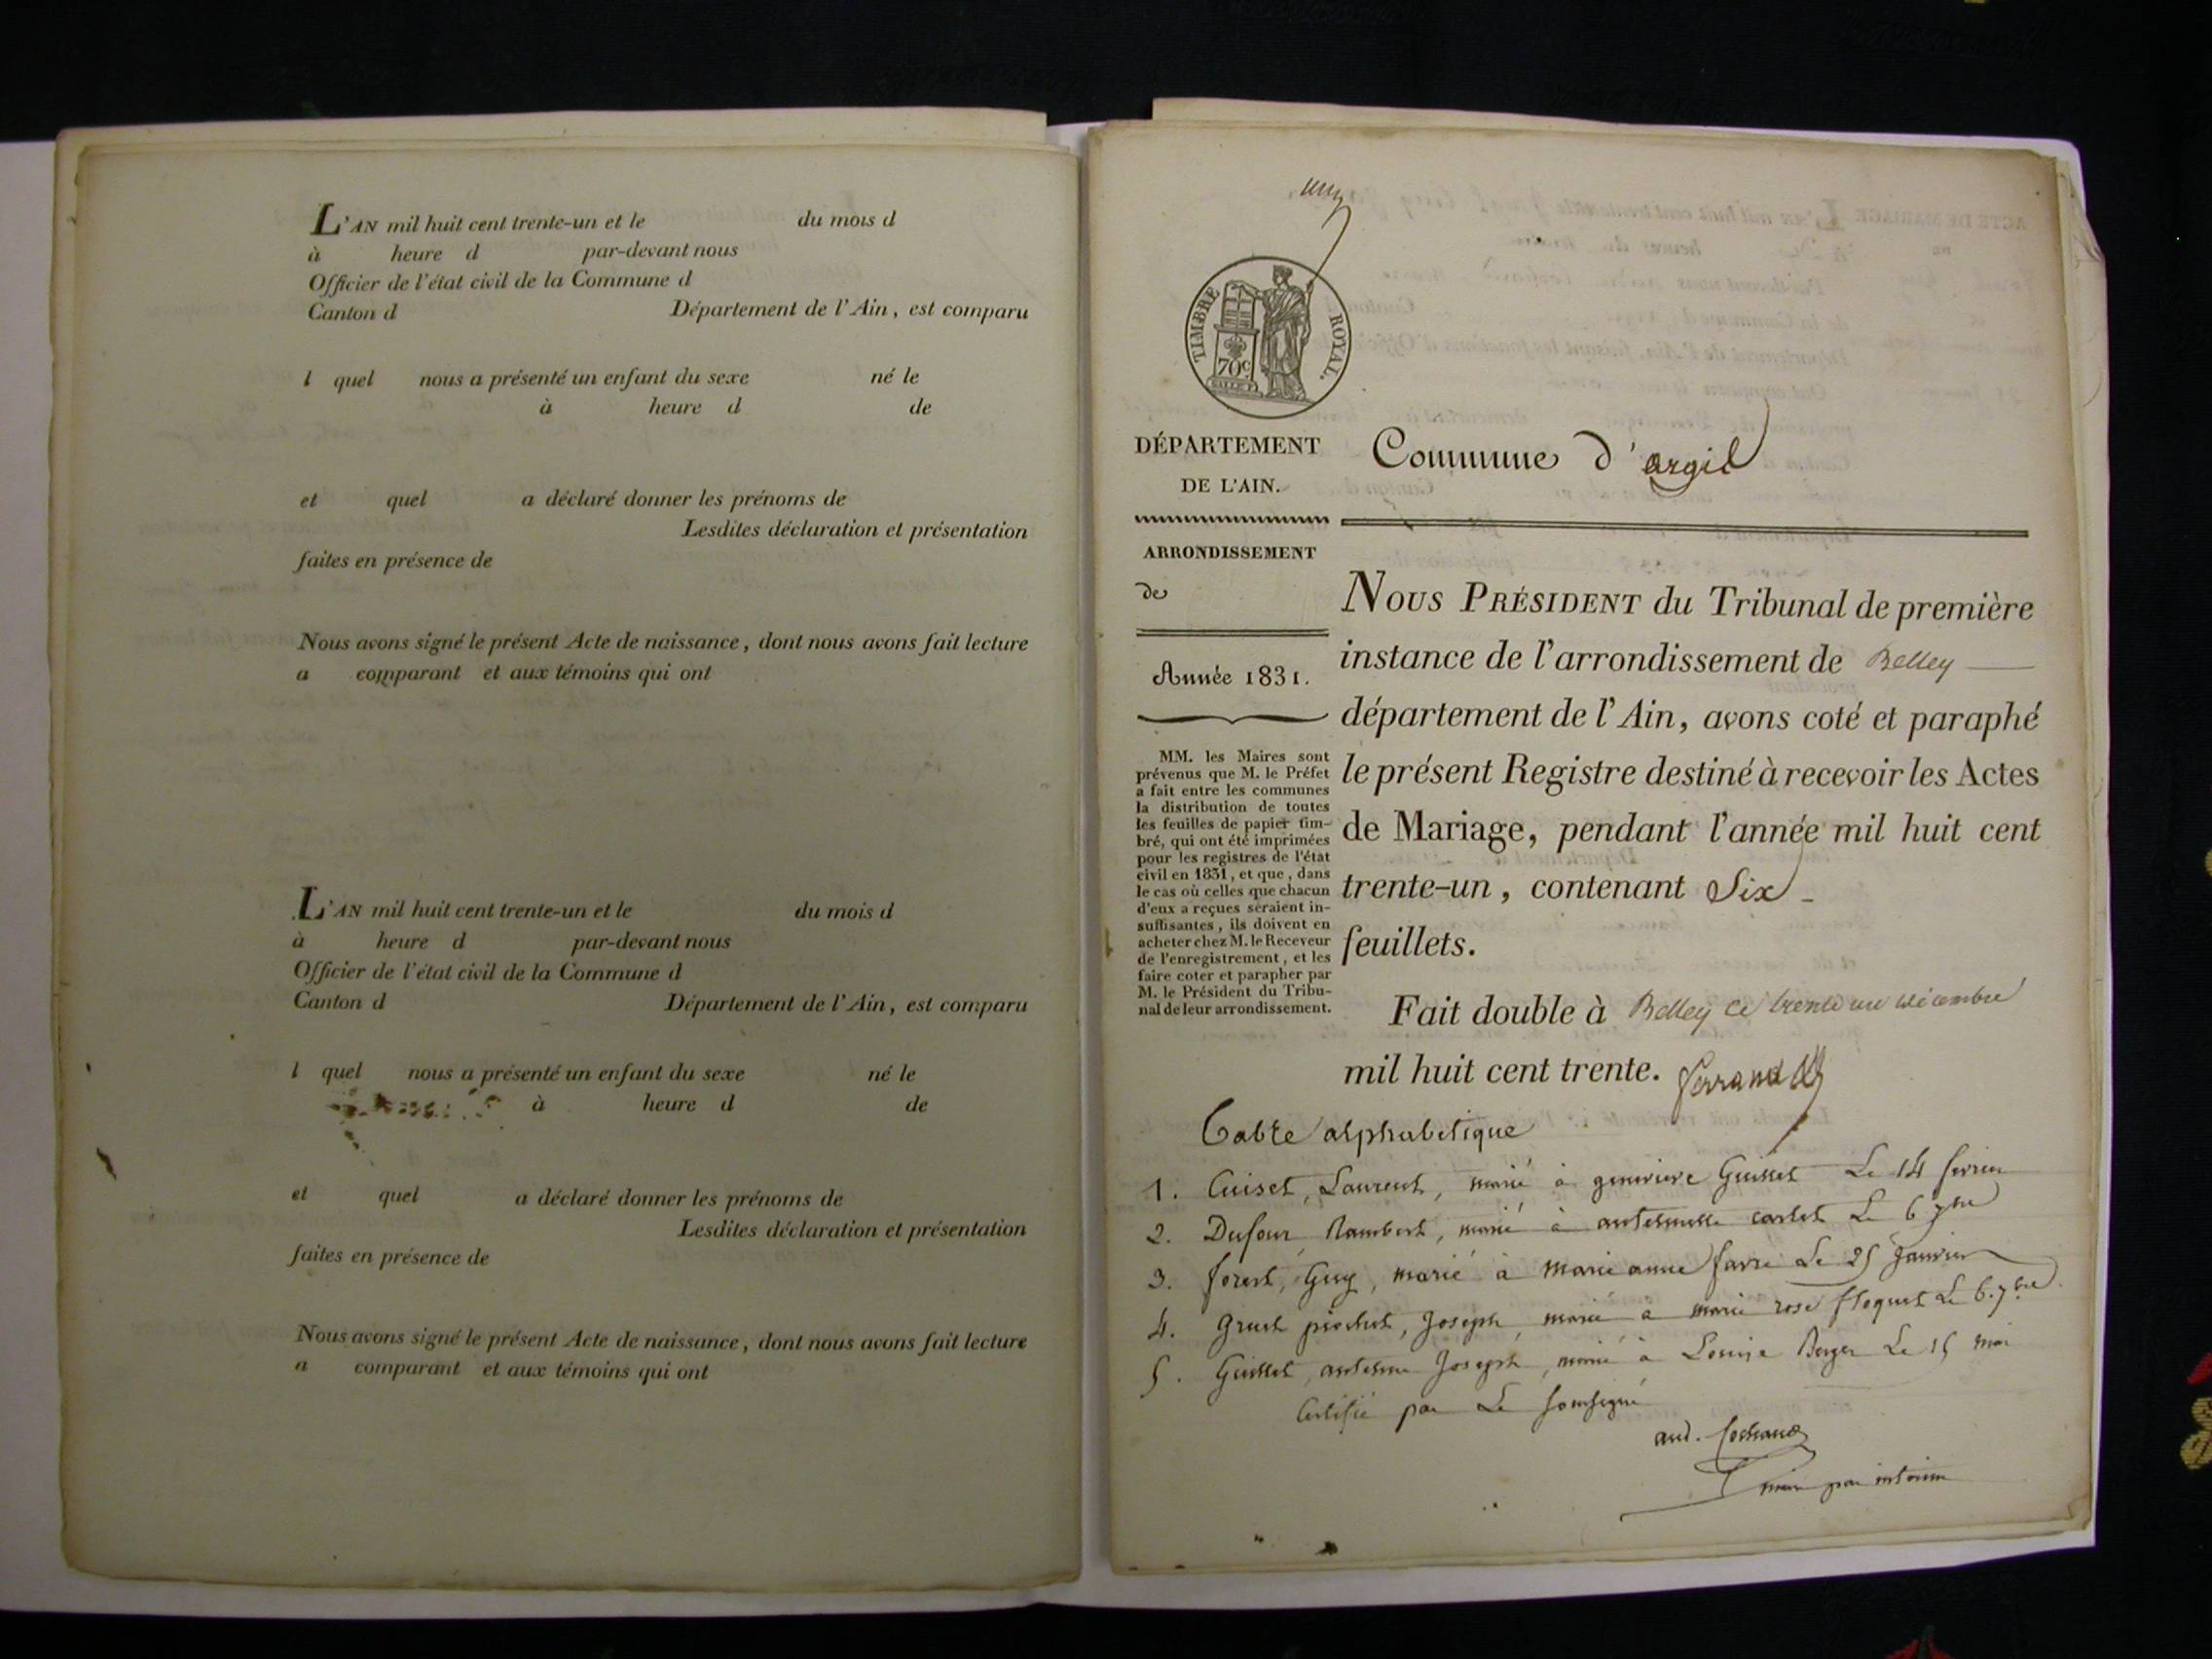 L'AN mil huit cent trente-un et le du mois d
à heure d par-devant nous
Officier de l'état civil de la Commune d
Canton d Département de l'Ain, est comparu
l quel nous a présenté un enfant du sexe né le
à heure d de
et quel a déclaré donner les prénoms de
Lesdites déclaration et présentation
faites en présence de
Nous avons signé le présent Acte de naissance, dont nous avons fait lecture
a comparant et aux témoins qui ont
L'AN mil huit cent trente-un et le du mois d
à heure d par-devant nous
Officier de l'état civil de la Commune d
Canton d Département de l'Ain, est comparu
l quel nous a présenté un enfant du sexe né le
à heure d de
et quel a déclaré donner les prénoms de
Lesdites déclaration et présentation
faites en présence de
Nous avons signé le présent Acte de naissance, dont nous avons fait lecture
a comparant et aux témoins qui ont
TIMBRE ROYAL.
70c.
DÉPARTEMENT
DE L'AIN.
Commune d'argil
ARRONDISSEMENT
de
Année 1831.
MM. les Maires sont
prévenus que M. le Préfet
a fait entre les communes
la distribution de toutes
les feuilles de papier tim-
bré, qui ont été imprimées
pour les registres de l'état
civil en 1831, et que, dans
le cas où celles que chacun
d'eux a reçues seraient in-
suffisantes, ils doivent en
acheter chez M. le Receveur
de l'enregistrement, et les
faire coter et parapher par
M. le Président du Tribu-
nal de leur arrondissement.
NOUS PRÉSIDENT du Tribunal de première
instance de l'arrondissement de Belley
département de l'Ain, avons coté et paraphé
le présent Registre destiné à recevoir les Actes
de Mariage, pendant l'année mil huit cent
trente-un, contenant Six
feuillets.
Fait double à Belley ce trente un décembre
mil huit cent trente. ferrand
Table alphabetique
1. Cuiset, Laurent, marié à genevieve Guisset Le 14 fevrier
2. Dufour Rambert, marié à antoinette carlet Le 6 7bre
3. forest, Guy, marié à marie anne favre Le 25 Janvier
4. Gruet piochet, Joseph, marié à marie rose floquet Le 6. 7bre
5. Guisset, antoine Joseph, marié à Louise Berger Le 15 mai
Certifié par Le Soussigné
and.
maire par interim